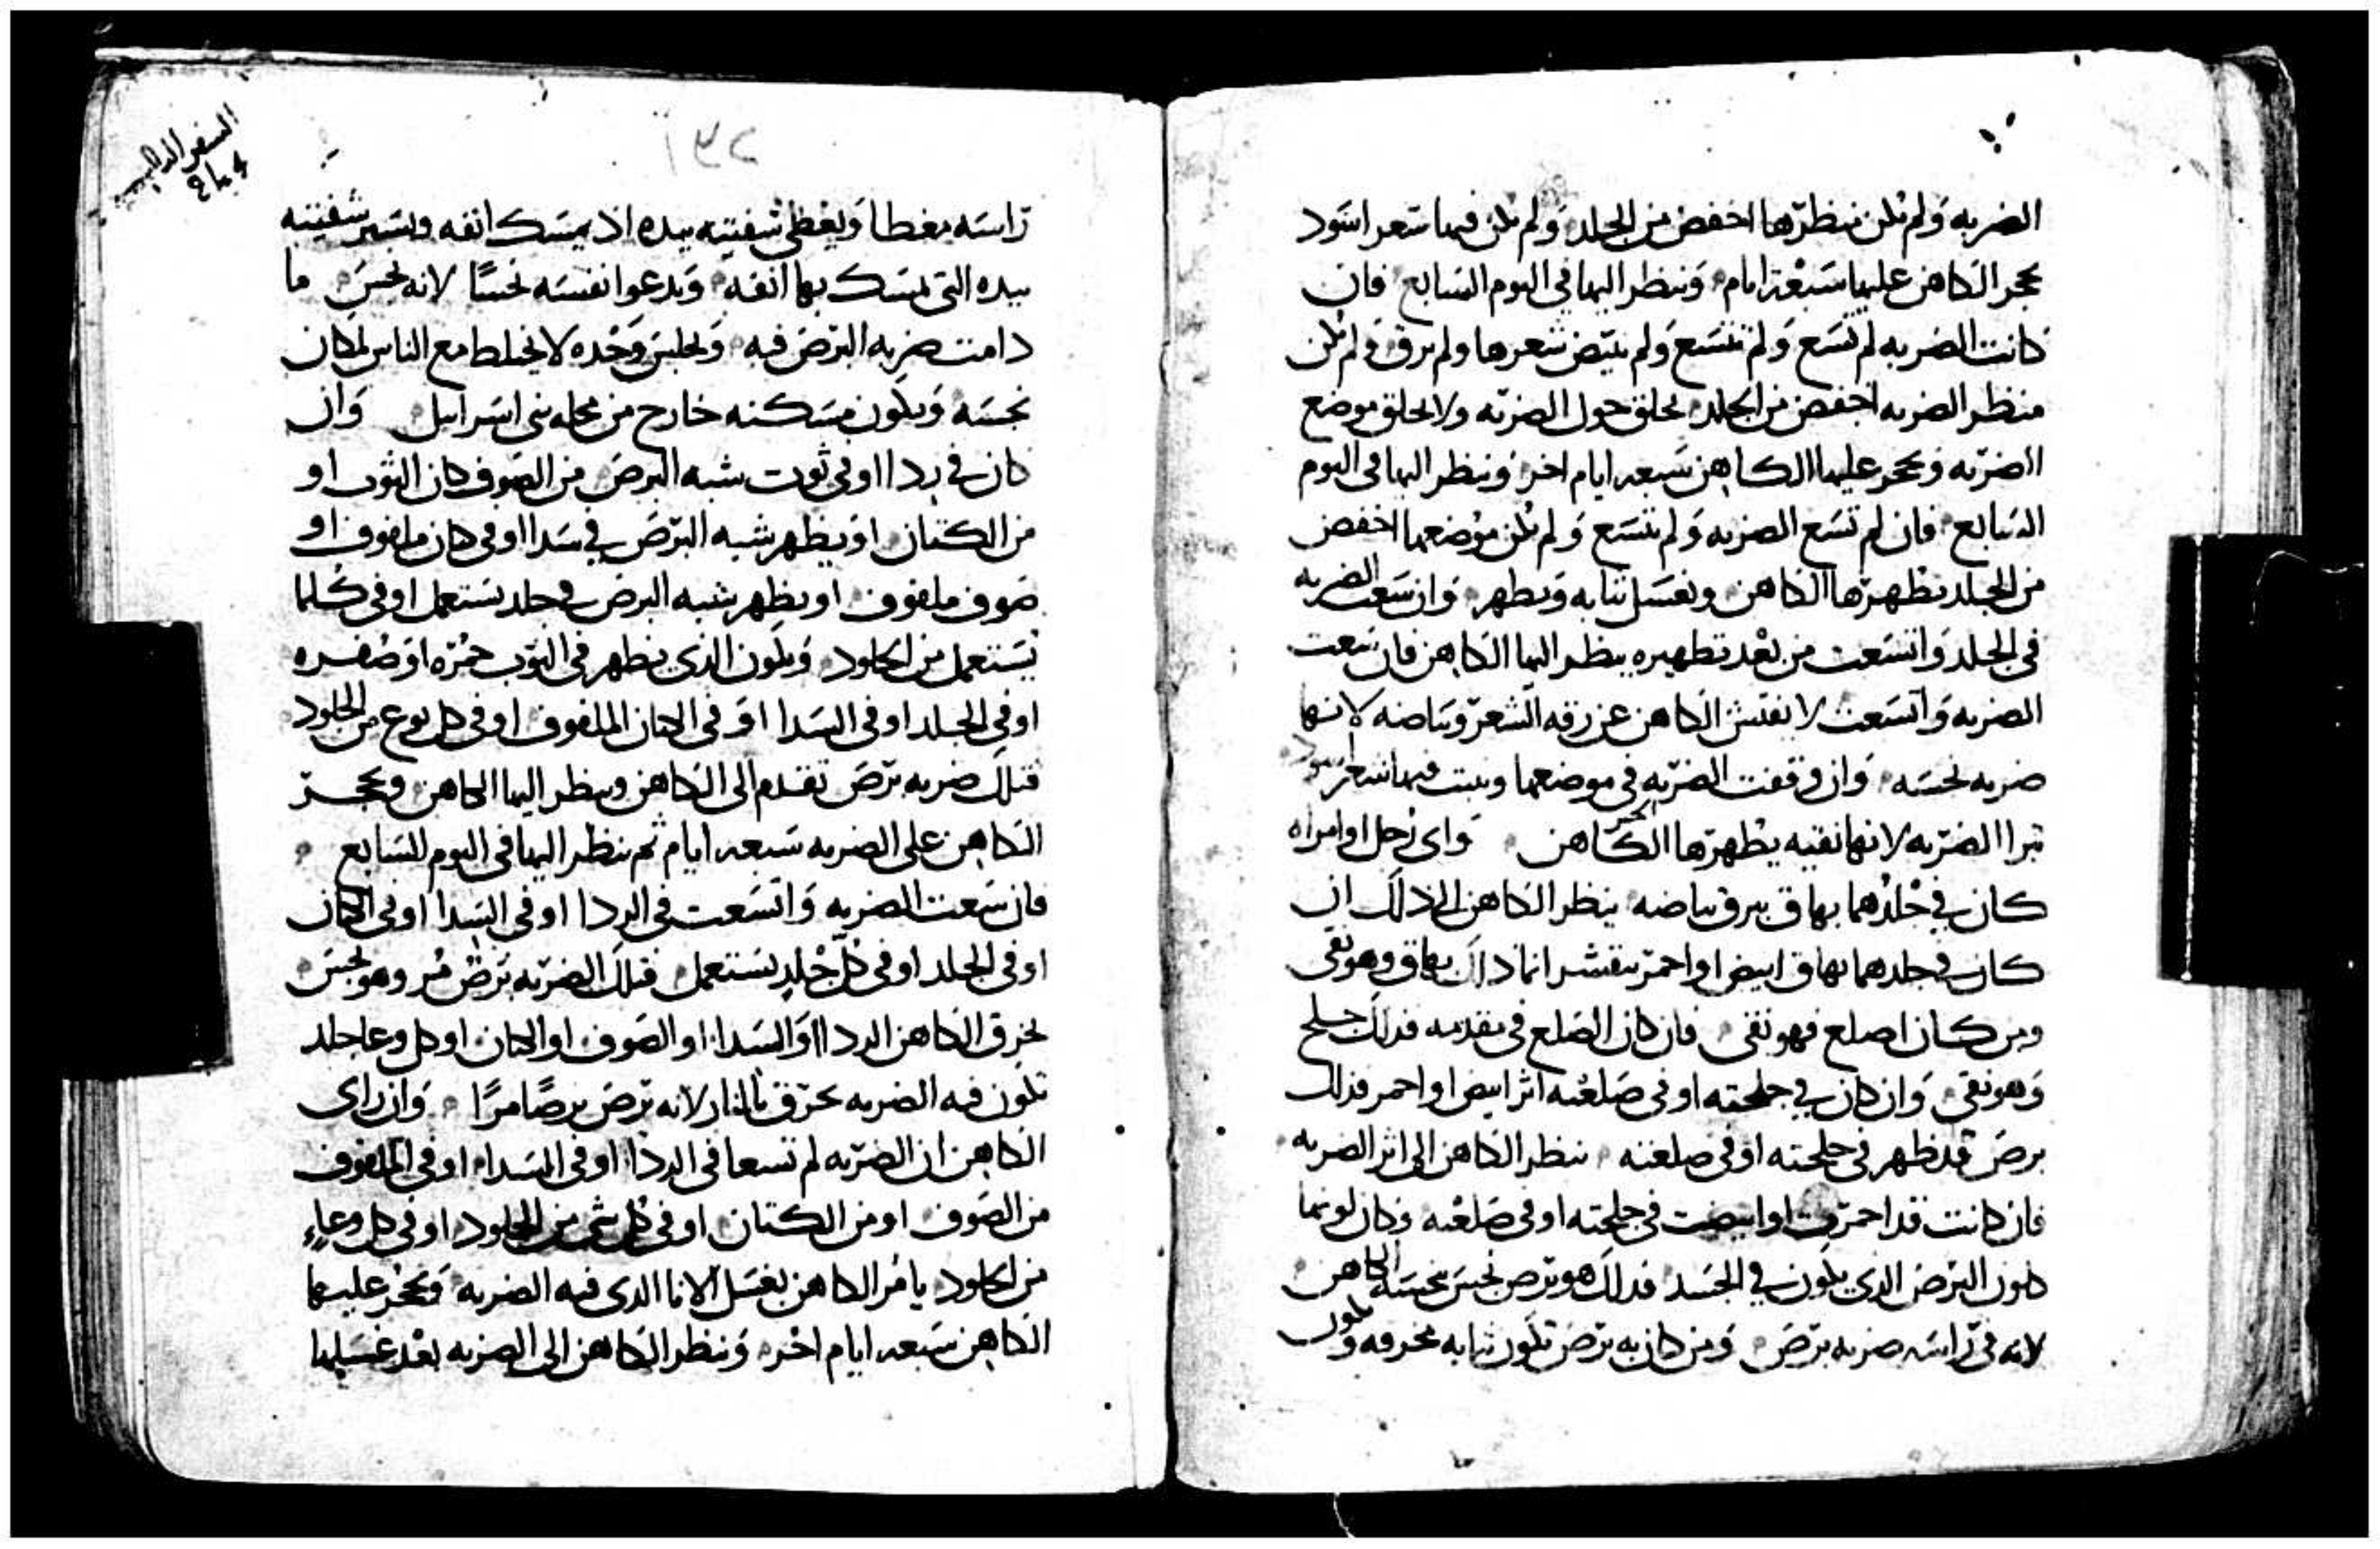 الضربه ولم يكن منظرها اخفض من الجلد ولم يكن فيها شعر اسود
يحجر الكاهن عليها سبعة ايام وينظر اليها في اليوم السابع فان
كانت الضربه لم تسع ولم تتسع ولم يبيض شعرها ولم يرق ولم يكن
منظر الضربه اخفض من الجلد يحلق حول الضربه ولا يحلق موضع
الضربه ويحجر عليها الكاهن سبعه ايام اخر وينظر اليها في اليوم
السابع فان لم تسع الضربه ولم تتسع ولم يكن موضعها اخفض
من الجلد يطهرها الكاهن ويغسل ثيابه ويطهر وان سعت الضربه
في الجلد واتسعت من بعد تطهيره ينظر اليها الكاهن فان سعت
الضربه واتسعت لا يفتش الكاهن عن رقه الشعر وبياضه لانها
ضربه نجسه وان وقفت الضربه في موضعها ونبت فيها شعر اسود
تبرا الضربه لانها نقيه يطهرها الكاهن واى رجل او امراه
كان في جلدهما بهاق يبرق بياضه ينظر الكاهن الى ذلك ان
كان في جلدهما بهاق ابيض او احمر يتقشر انما ذاك بهاق وهو نقى
ومن كان اصلع فهو نقى فان كان الصلع في مقدمه فذلك جلح
وهو نقى وان كان في جلحته او في صلعته اثر ابيض او احمر فذلك
برص قد ظهر في جلحته او في صلعته ينظر الكاهن الى اثر الضربه
فان كانت قد احمرت او ابيضت في جلحته او في صلعته وكان لونها
كلون البرص الذي يكون في الجسد فذلك هو برص نجس ينجسه الكاهن
لانه في راسه ضربه برص ومن كان به برص تكون ثيابه مخروقه ويكون
السفر الثالث
راسه مغطا ويغطي شفتيه بيده اذ يمسك انفه ويستر شفتيه
بيده التى يمسك بها انفه ويدعوا نفسه نجسًا لانه نجس ما
دامت ضربه البرص فيه ويجلس وحده لا يختلط مع الناس لمكان
نجسه ويكون مسكنه خارج من محله بنى اسرايل وان
كان في ردا او في ثوب شبه البرص من الصوف كان الثوب او
من الكتان او يظهر شبه البرص في سدا او في كتان ملفوف او
صوف ملفوف او يظهر شبه البرص في جلد يستعمل او في كلما
يستعمل من الجلود ويكون الذى يظهر في الثوب حمره او صفره
او في الجلد او في السدا او في الكتان الملفوف او في كل نوع من الجلود
فتلك ضربه برص تقدم الى الكاهن وينظر اليها الكاهن ويحجر
الكاهن على الضربه سبعه ايام ثم ينظر اليها في اليوم السابع
فان سعت الضربه واتسعت في الردا او في السدا او في الكتان
او في الجلد او في كل جلد يستعمل فتلك الضربه برص مُر وهو نجس
يحرق الكاهن الردا او السدا او الصوف او الكتان او كل وعا جلد
تكون فيه الضربه يحرق بالنار لانه برص برصًا مرًا وان راى
الكاهن ان الضربه لم تسعا في الردا او في السدا او في الملفوف
من الصوف او من الكتان او في كل شى من الجلود او في كل وعاءٍ
من الجلود يامُر الكاهن بغسل الانا الذى فيه الضربه ويحجر عليها
الكاهن سبعه ايام اخره وينظر الكاهن الى الضربه بعد غسلها